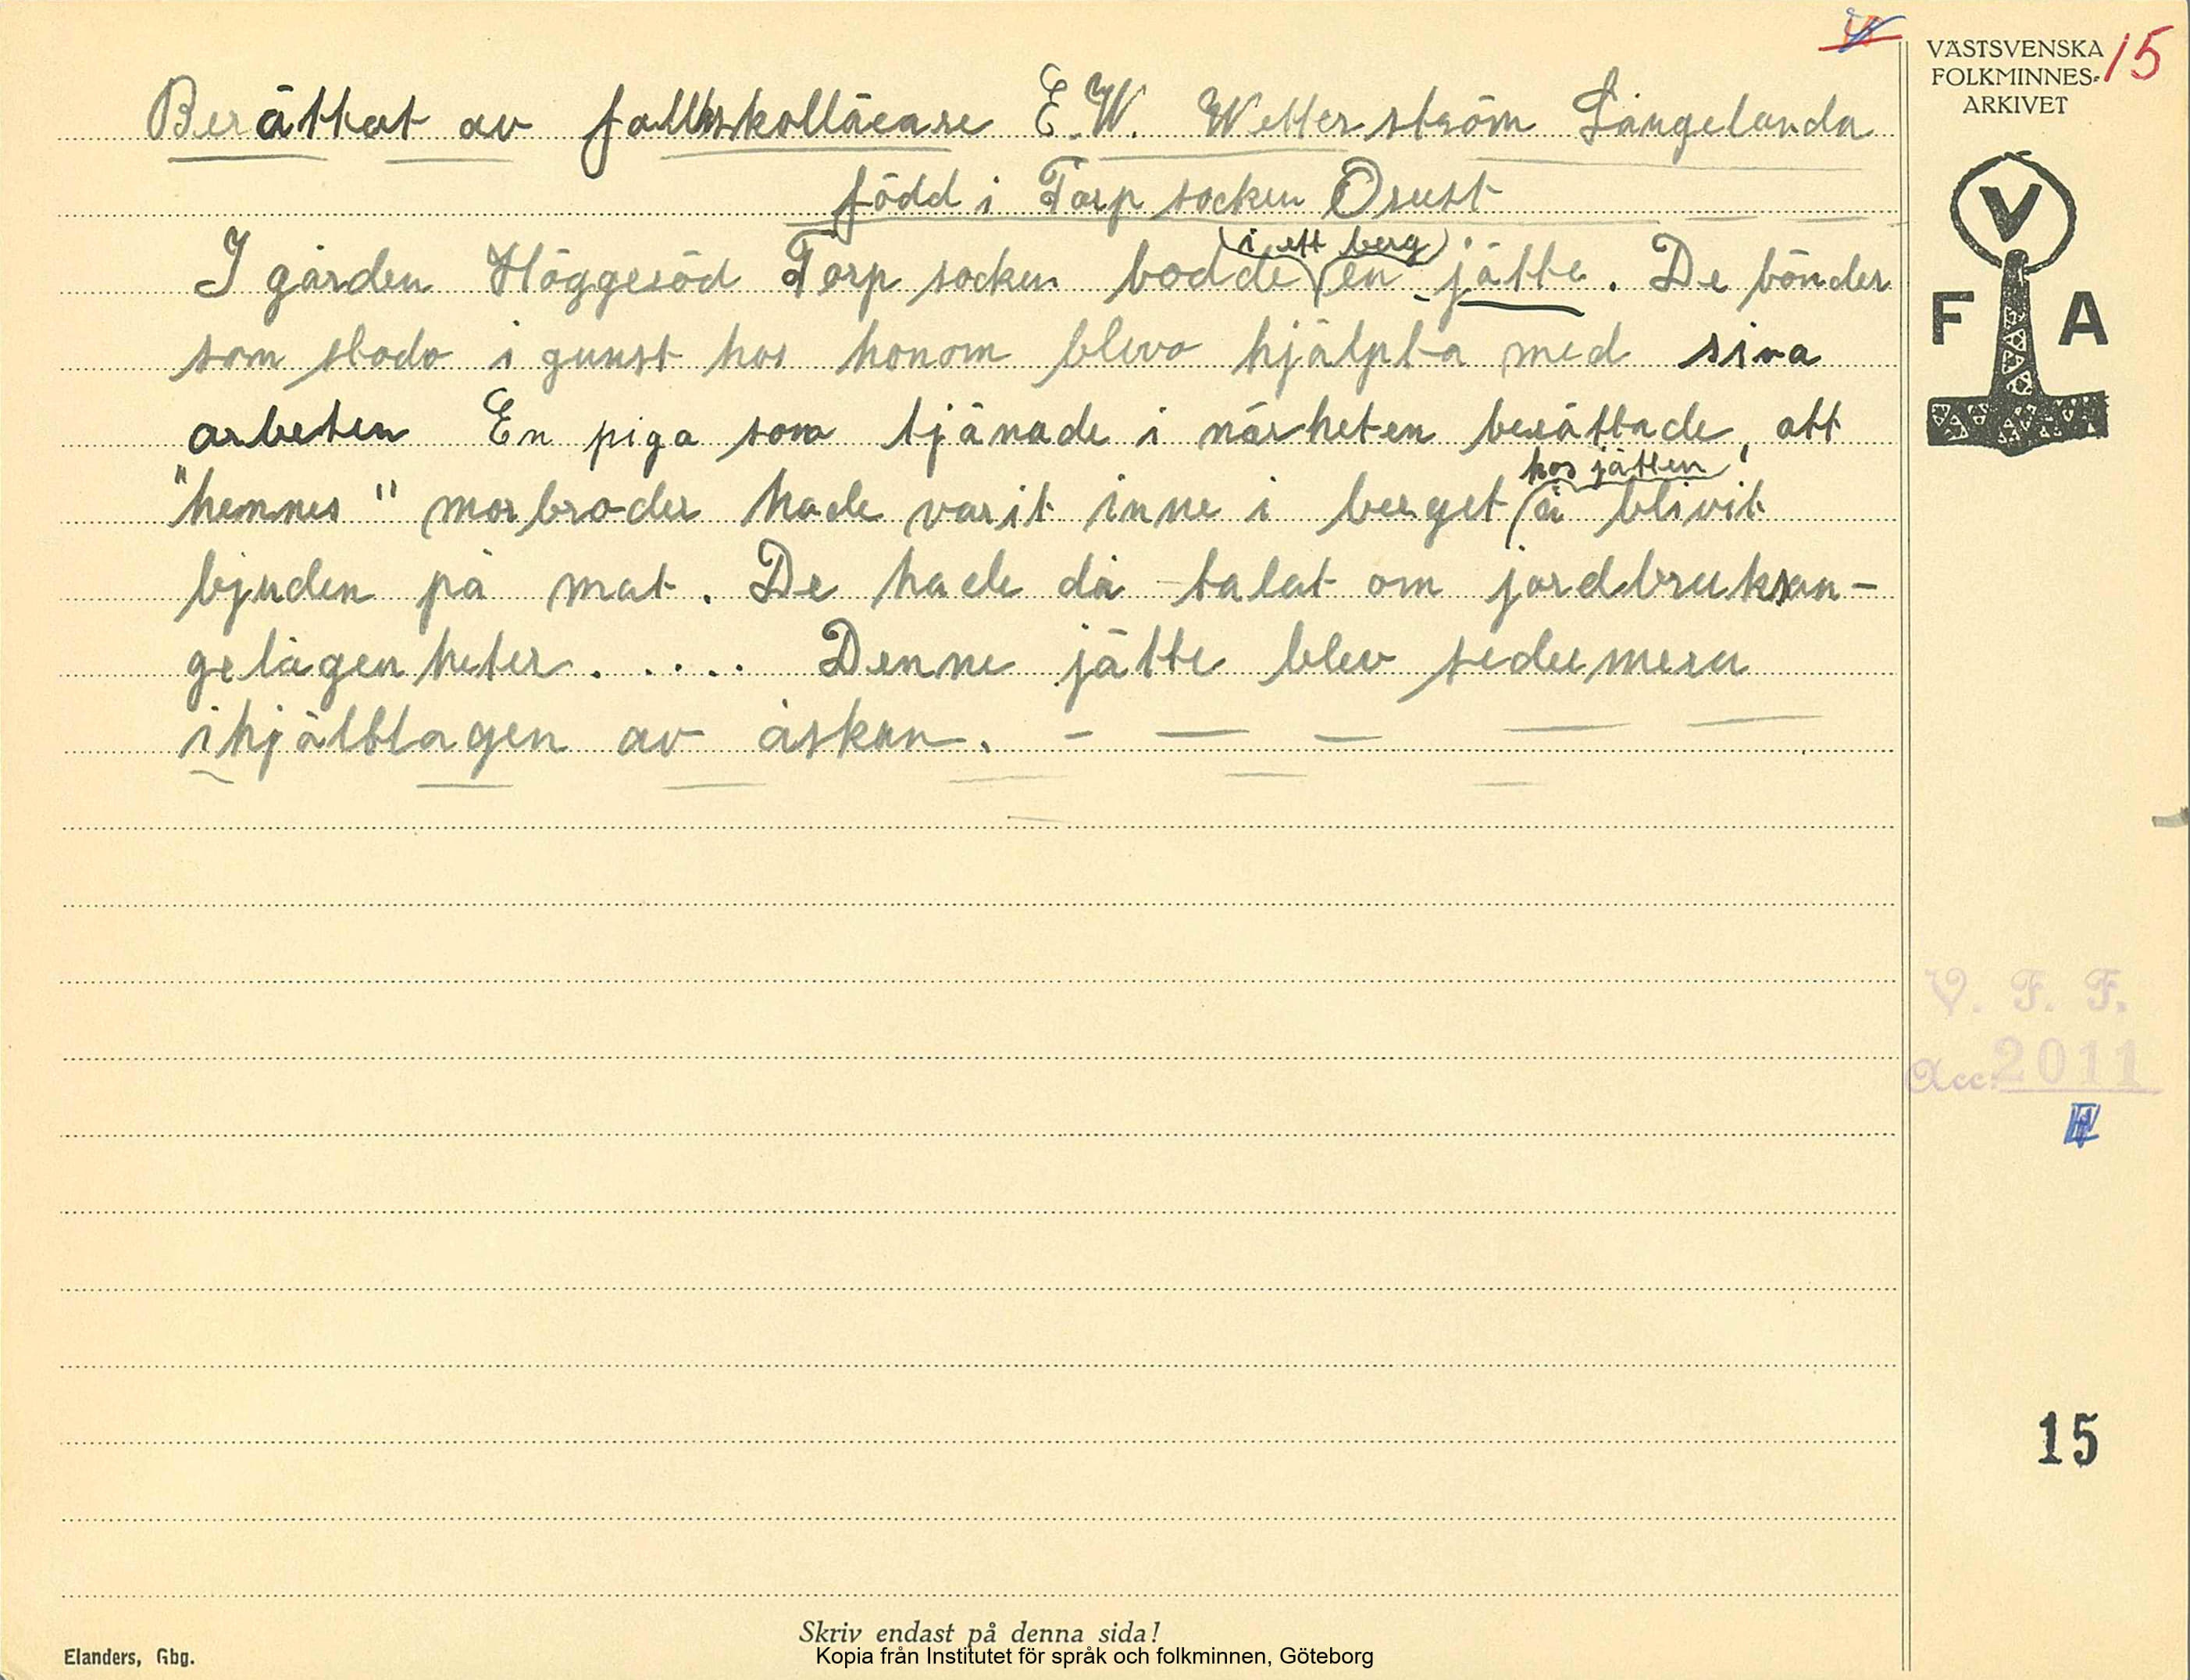 VÄSTSVENSKA
FOLKMINNES-
ARKIVET
15
Berättat av folkskollärare E.W. Wetterström Långelanda
född i Torp socken Orust
I gården Höggesöd Torp socken bodde (i ett berg) en jätte. De bönder
som stodo i gunst hos honom blevo hjälpta med sina
arbeten En piga som tjänade i närheten berättade, att
"hennes" morbroder hade varit inne i berget hos jätten å blivit
bjuden på mat. De hade då talat om jordbruksan-
gelägenheter. . . . . Denne jätte blev sedemera
ihjälslagen av åskan. - — — — —
V
F A
V. F. F.
Acc. 2011
15
Skriv endast på denna sida!
Elanders, Gbg.
Kopia från Institutet för språk och folkminnen, Göteborg